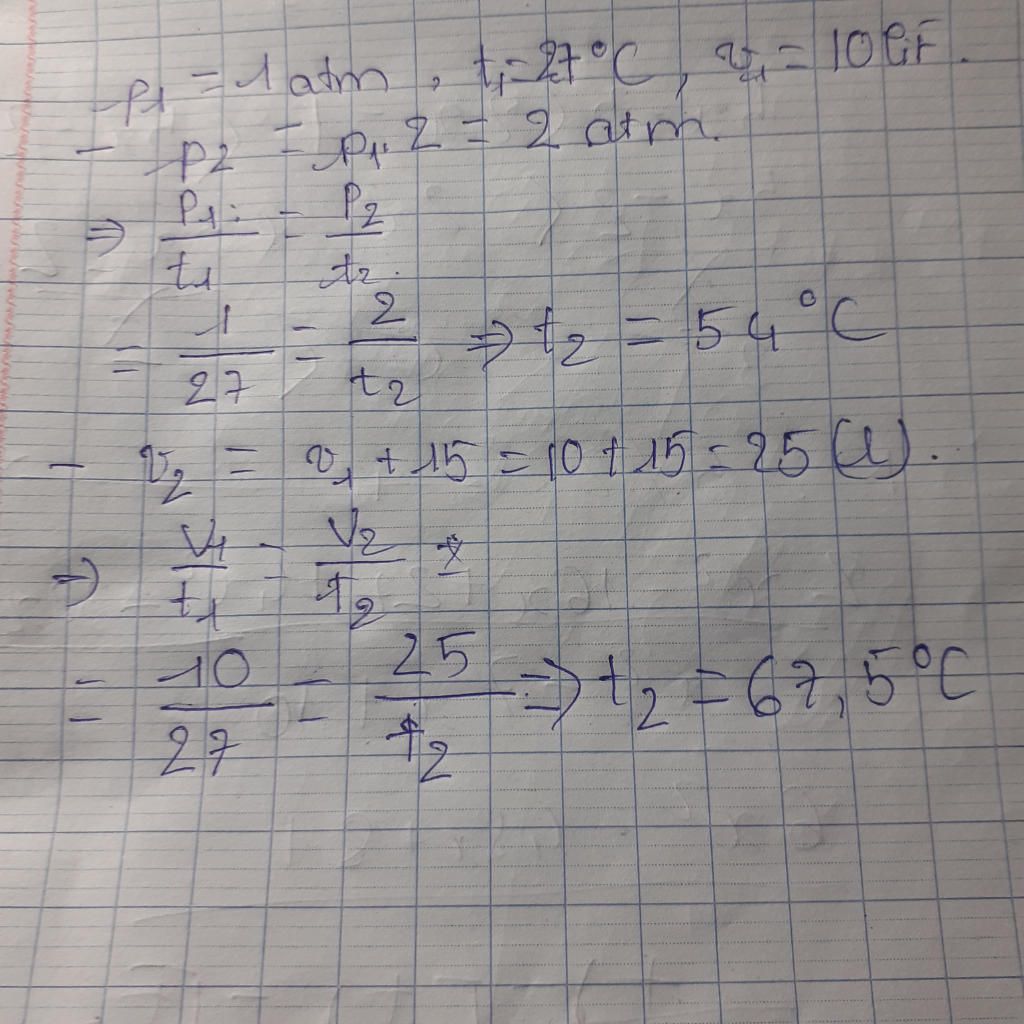 - p₁ = 1 atm, t₁ = 27°C, v₁ = 10 lit.
- p₂ = p₁.2 = 2 atm.
⇒ P₁/t₁ = P₂/t₂.
= 1/27 = 2/t₂ ⇒ t₂ = 54°C
- v₂ = v₁ + 15 = 10 + 15 = 25 (l).
⇒ V₁/t₁ = V₂/t₂
= 10/27 = 25/t₂ ⇒ t₂ = 67,5°C